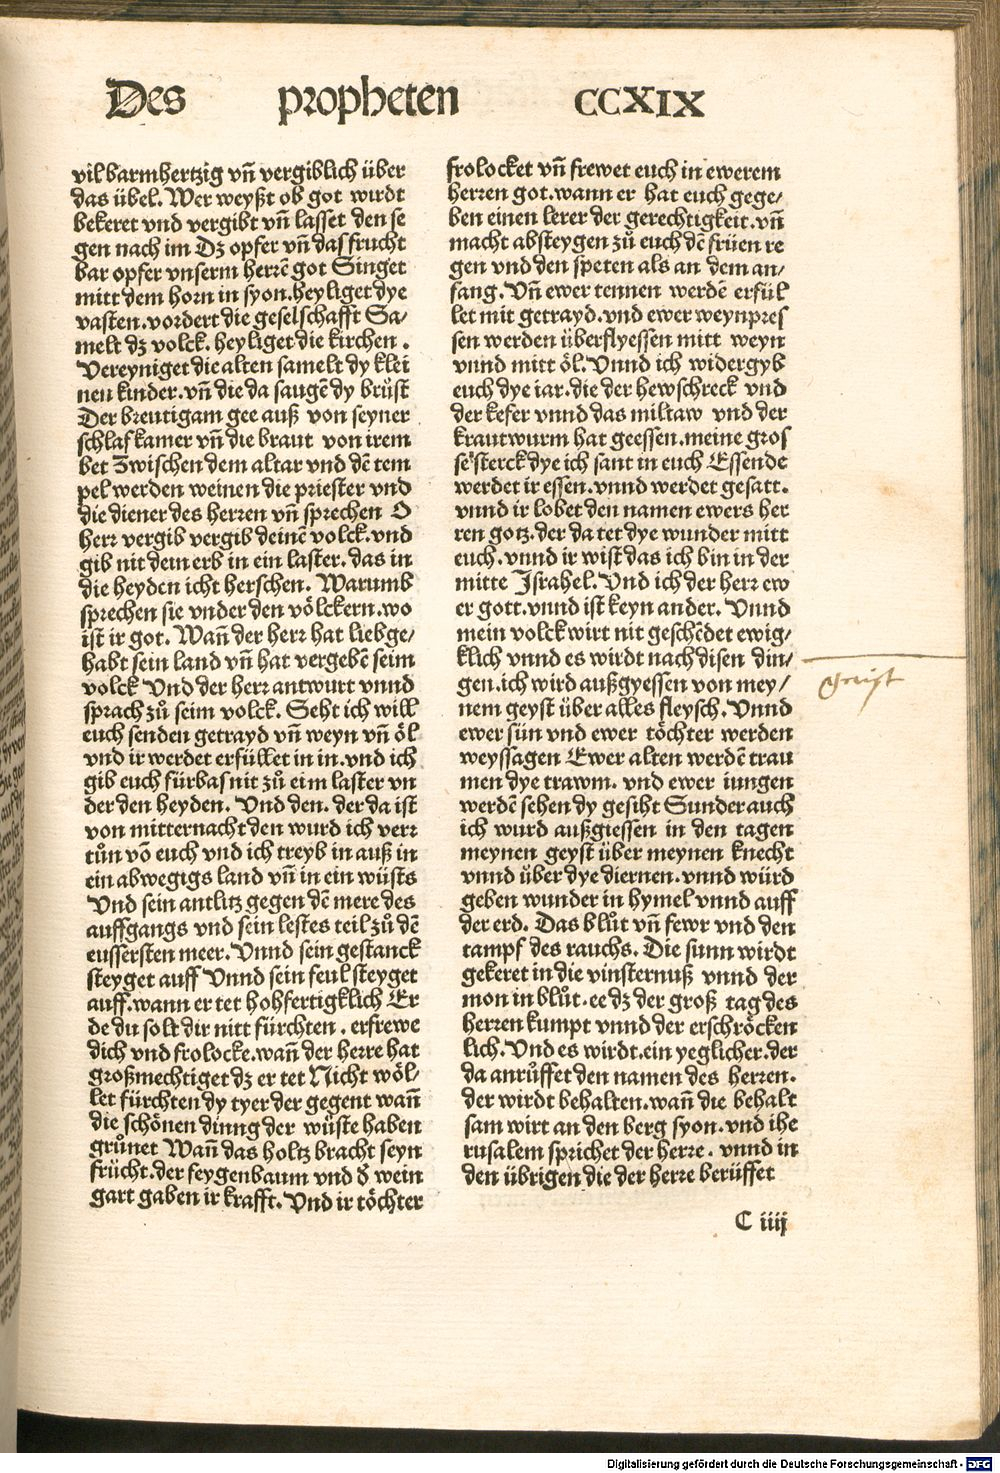 Des propheten CCXIX
vil barmhertzig vñ vergiblich über
das übel. Wer weyßt ob got wirdt
bekeret vnd vergibt vñ lasset den se
gen nach im Dz opfer vñ das frucht
bar opfer vnserm herrē got Singet
mitt dem horn in syon. heyliget dye
vasten. vordert die geselschafft Sa⸗
melt dz volck. heyliget die kirchen .
Vereyniget die alten samelt dy klei
nen kinder. vñ die da saugē dy brüst
Der breutigam gee auß von seyner
schlafkamer vñ die braut von irem
bet Zwischen dem altar vnd dē tem
pel werden weinen die priester vnd
die diener des herren vñ sprechen O
herr vergib vergib deinē volck. vnd
gib nit dein erb in ein laster. das in
die heyden icht herschen. Warumb
sprechen sie vnder den völckern. wo
ist ir got. Wañ der herr hat liebge⸗
habt sein land vñ hat vergebē seim
volck Vnd der herr antwurt vnnd
sprach zů seim volck. Seht ich will
euch senden getrayd vñ weyn vñ öl
vnd ir werdet erfüllet in in. vnd ich
gib euch fürbas nit zů eim laster vn
der den heyden. Vnd den. der da ist
von mitternacht den wurd ich verr
tůn vō euch vnd ich treyb in auß in
ein abwegigs land vñ in ein wüsts
Vnd sein antlitz gegen dē mere des
auffgangs vnd sein lestes teil zů dē
eussersten meer. Vnnd sein gestanck
steyget auff Vnnd sein feul steyget
auff. wann er tet hohfertigklich Er
de du solt dir nitt fürchten . erfrewe
dich vnd frolocke. wañ der herre hat
großmechtiget dz er tet Nicht wöl⸗
let fürchten dy tyer der gegent wañ
die schönen dinng der wüste haben
grůnet Wañ das holtz bracht seyn
frücht. der feygenbaum vnd ð wein
gart gaben ir krafft. Vnd ir töchter
frolocket vñ frewet euch in ewerem
herren got. wann er hat euch gege⸗
ben einen lerer der gerechtigkeit. vñ
macht absteygen zů euch dē früen re
gen vnd den speten als an dem an⸗
fang. Vñ ewer tennen werdē erfül
let mit getrayd. vnd ewer weynpres
sen werden überflyessen mitt weyn
vnnd mitt öl. Vnnd ich widergyb
euch dye iar. die der hewschreck vnd
der kefer vnnd das miltaw vnd der
krautwurm hat geessen. meine gros
se sterck dye ich sant in euch Essende
werdet ir essen. vnnd werdet gesatt.
vnnd ir lobet den namen ewers her
ren gotz. der da tet dye wunder mitt
euch. vnnd ir wist das ich bin in der
mitte Israhel. Vnd ich der herr ew
er gott. vnnd ist keyn ander. Vnnd
mein volck wirt nit geschēdet ewig⸗
klich vnnd es wirdt nach disen din⸗
gen. ich wird außgyessen von mey⸗
nem geyst über alles fleysch. Vnnd
ewer sün vnd ewer töchter werden
weyssagen Ewer alten werdē trau
men dye trawm. vnd ewer iungen
werdē sehen dy gesiht Sunder auch
ich wurd außgiessen in den tagen
meynen geyst über meynen knecht
vnnd über dye diernen. vnnd würd
geben wunder in hymel vnnd auff
der erd. Das blůt vñ fewr vnd den
tampf des rauchs. Die sunn wirdt
gekeret in die vinsternuß vnnd der
mon in blůt. ee dz der groß tag des
herren kumpt vnnd der erschröcken
lich. Vnd es wirdt. ein yeglicher. der
da anrůffet den namen des herren.
der wirdt behalten. wañ die behalt
sam wirt an den berg syon. vnd ihe
rusalem sprichet der herre . vnnd in
den übrigen die der herre berüffet
C iiij
geist
Digitalisierung gefördert durch die Deutsche Forschungsgemeinschaft - DFG